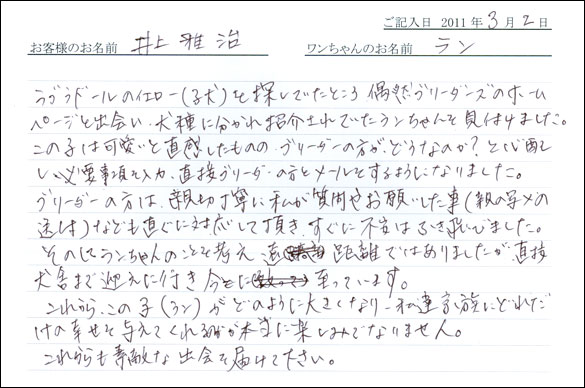 ご記入日 2011年3月2日
お客様のお名前 井上雅治 ワンちゃんのお名前 ラン
ラブラドールのイエロー(子犬)を探していたところ偶然ブリーダーズのホーム
ページと出会い、犬種に分かれ紹介されていたランちゃんを見付けました。
この子は可愛いと直感したものの、ブリーダーの方が、どうなのか?と心配し
い必要事項を入力、直接ブリーダーの方とメールをするようになりました。
ブリーダーの方は、親切丁寧に私が質問やお願いした事(親の写メの
送付)なども直ぐに対応して頂き、すぐに不安はふき飛びました。
その后ランちゃんのことを考え 遠 距離ではありましたが直接
犬舎まで迎えに行き 今 に 至っています。
これから、この子(ラン)がどのように大きくなり、私達家族にどれだ
けの幸せを与えてくれるのか本当に楽しみでなりません。
これからも素敵な出会を届けて下さい。